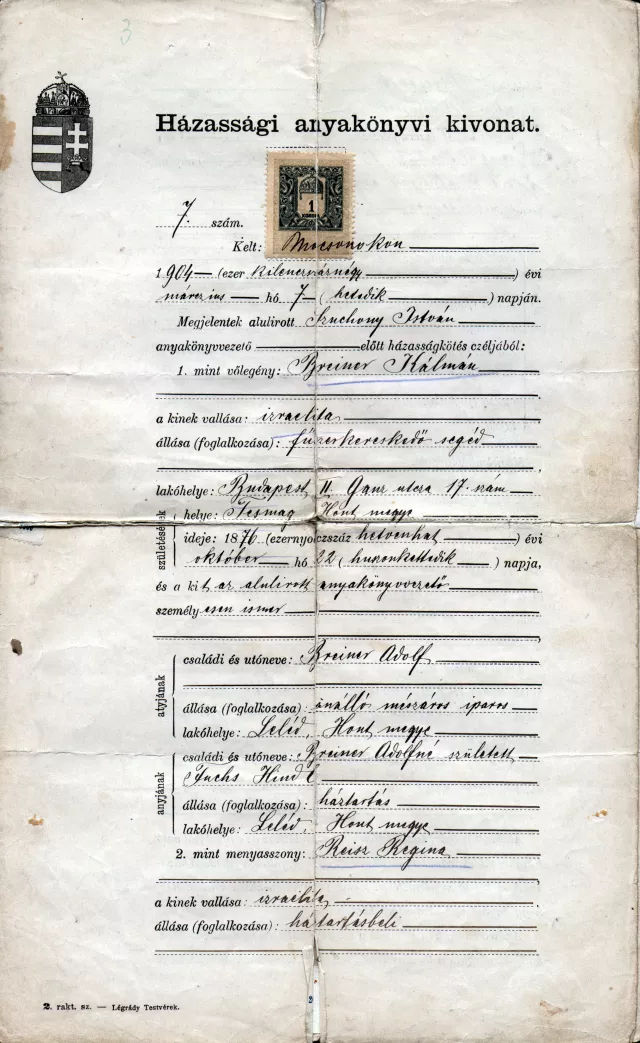 3
Házassági anyakönyvi kivonat.
1
KORONA
7. szám.
Kelt: Mocsonokon
1904 — (ezer kilenczszáznégy) évi
márczius — hó 7 — (hetedik) napján.
Megjelentek alulirott Szuchony István
anyakönyvvezető előtt házasságkötés czéljából:
1. mint vőlegény: Breiner Kálmán
a kinek vallása: izraelita
állása (foglalkozása): fűszerkereskedő segéd
lakóhelye: Budapest, II. Ganz utcza 17. szám
születésének
helye: Tesmag Hont megye
ideje: 1876 (ezernyolczszáz hetvenhat) évi
október — hó 22 (huszonkettedik) napja,
és a kit az alulirott anyakönyvvezető
személyesen ismer
atyjának
családi és utóneve: Breiner Adolf
állása (foglalkozása): önálló mészáros iparos
lakóhelye: Leléd, Hont megye
anyjának
családi és utóneve: Breiner Adolfné született
Fuchs Hindl
állása (foglalkozása): háztartás
lakóhelye: Leléd, Hont megye
2. mint menyasszony: Reisz Regina
a kinek vallása: izraelita
állása (foglalkozása): háztartásbeli
2. rakt. sz. — Légrády Testvérek.
2